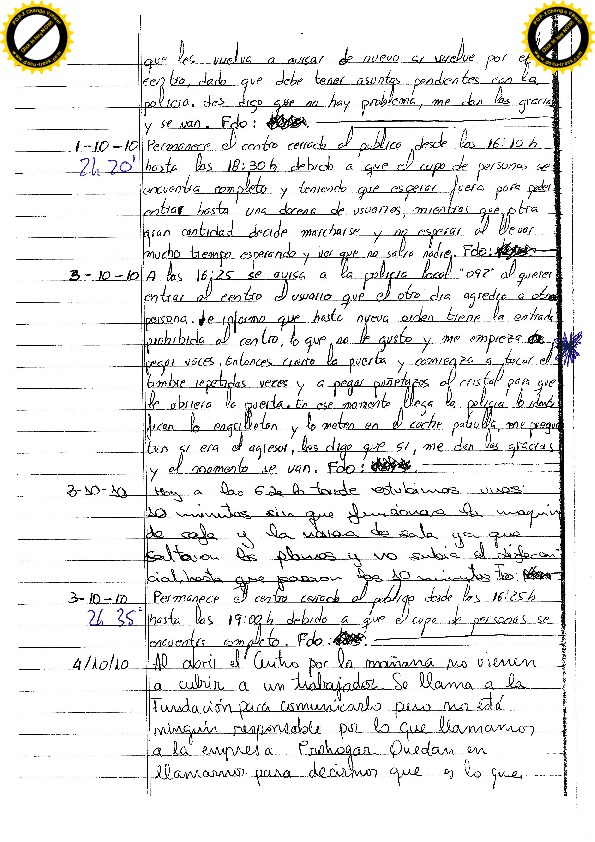 que les vuelva a avisar de nuevo si vuelve por el
centro, dado que debe tener asuntos pendientes con la
policia. Les digo que no hay problema, me dan las gracias
y se van. Fdo:
1-10-10 Permanece el centro cerrado al publico desde las 16:10h
2h 20' hasta las 18:30h debido a que el cupo de personas se
encuentra completo y teniendo que esperar fuera para poder
entrar hasta una docena de usuarios, mientras que otra
gran cantidad decide marcharse y no esperar al llevar
mucho tiempo esperando y ver que no salia nadie. Fdo:
3-10-10 A las 16:25 se avisa a la policia local "092" al querer
entrar al centro el usuario que el otro dia agredio a otra
persona. Le informo que hasta nueva orden tiene la entrada
prohibida al centro, lo que no le gusto y me empieza a
pegar voces. Entonces cierro la puerta y comienza a tocar el
timbre repetidas veces y a pegar puñetazos al cristal para que
le abriera la puerta. En ese momento llega la policia lo identi
fican lo engrilletan y lo meten en el coche patrulla, me pregun
tan si era el agresor, les digo que si, me dan las gracias
y el momento se van. Fdo:
3-10-10 Hoy a las 6 de la tarde estubimos unos
10 minutos sin que funcionara la maquin
de cafe y la de sala ya que
saltaron los plomos y no subia el diferen
cial hasta que pasaron los 10 minutos Fdo:
3-10-10 Permanece el centro cerrado al publico desde las 16:25h
2h 35' hasta las 19:00h debido a que el cupo de personas se
encuentra completo. Fdo:
4/10/10 Al abrir el Centro por la mañana no vienen
a cubrir a un trabajador. Se llama a la
Fundación para comunicarlo pero no está
ningún responsable por lo que llamamos
a la empresa Prohogar. Quedan en
llamarnos para decirnos que es lo que